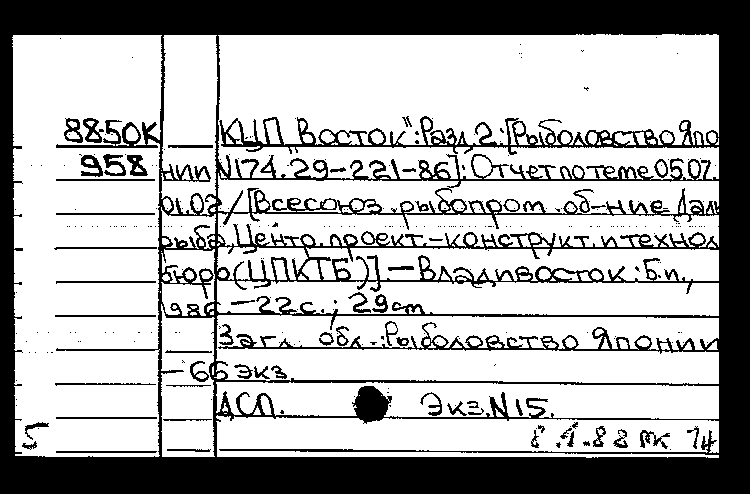 88-50К КЦП "Восток": Разл. 2: [Рыболовство Япо
958 нии N174.29-221-86]: Отчет по теме 05.07.
01.02 / [Всесоюз. рыбопром. об-ние Даль
рыба, Центр. проект.-конструкт. и технол
бюро (ЦПКТБ)]. — Владивосток: Б.и.,
1986. — 22 с.; 29 см.
Загл. обл.: Рыболовство Японии
— 66 экз.
ДСП. Экз. N 15.
5 8.1.88 МК 14